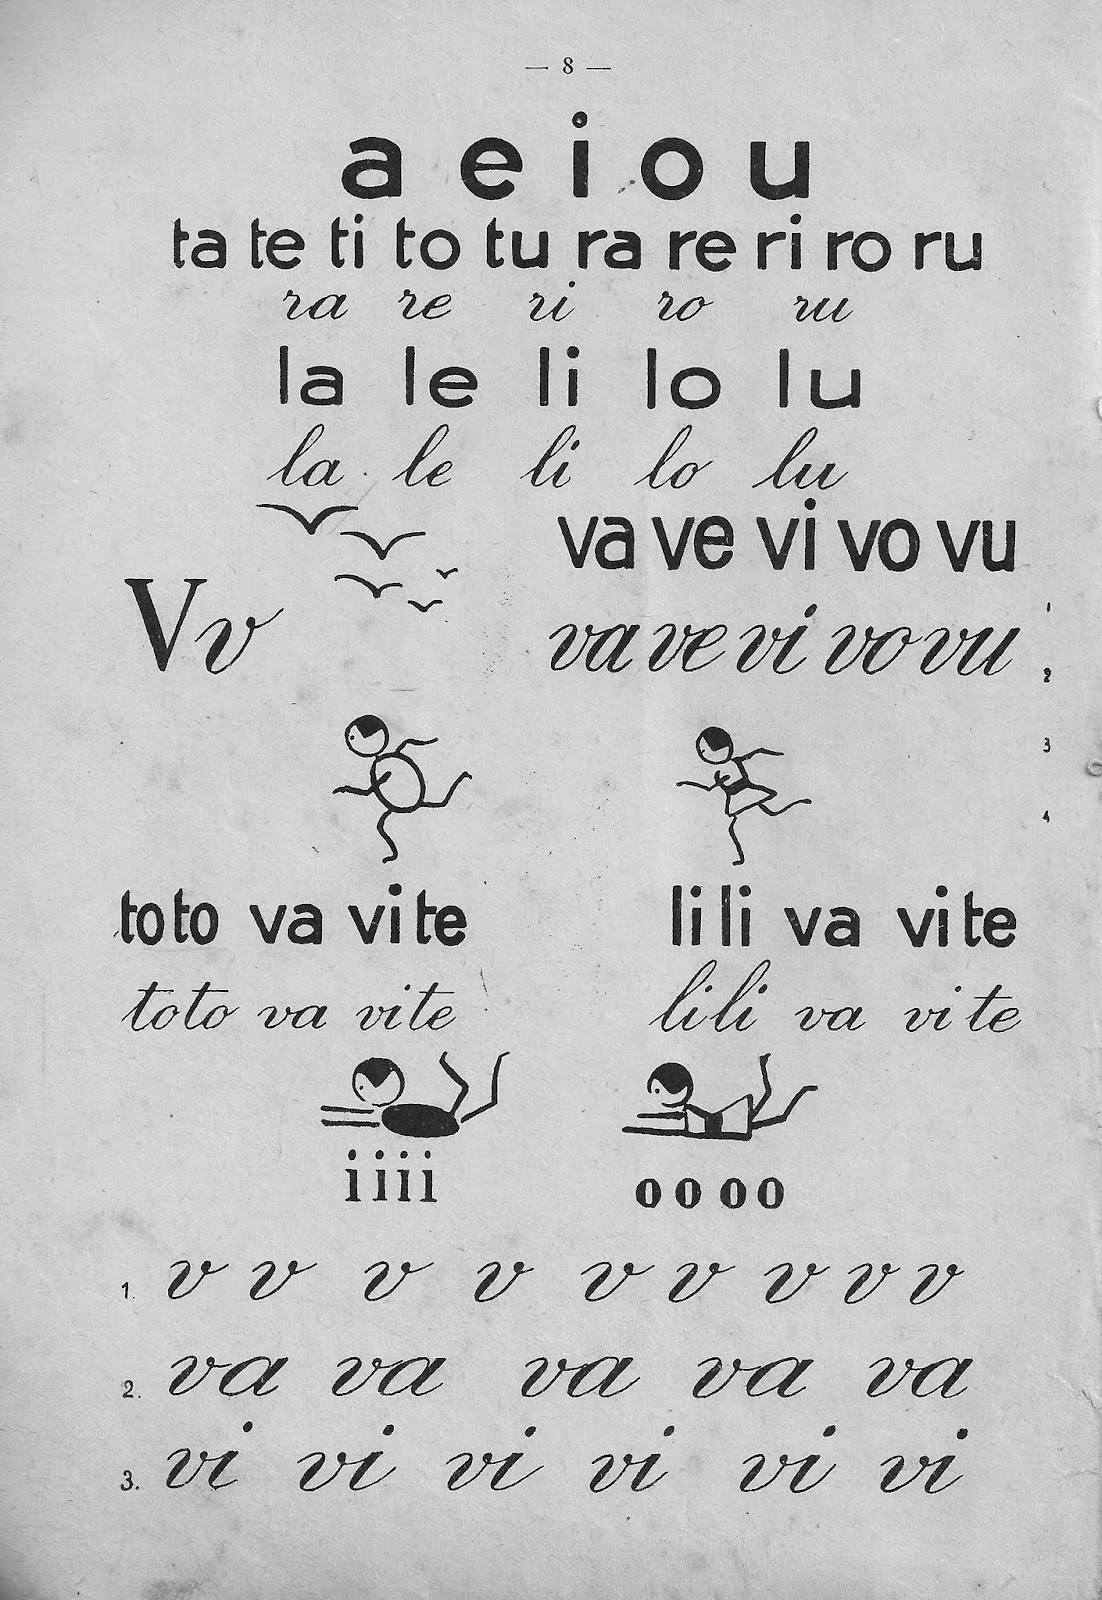 — 8 —
a e i o u
ta te ti to tu ra re ri ro ru
ra re ri ro ru
la le li lo lu
la le li lo lu
va ve vi vo vu
V v
va ve vi vo vu
1
2
3
4
toto va vite
lili va vite
toto va vite
lili va vite
i i i i
o o o o
1. v v v v v v v v v
2. va va va va va
3. vi vi vi vi vi vi